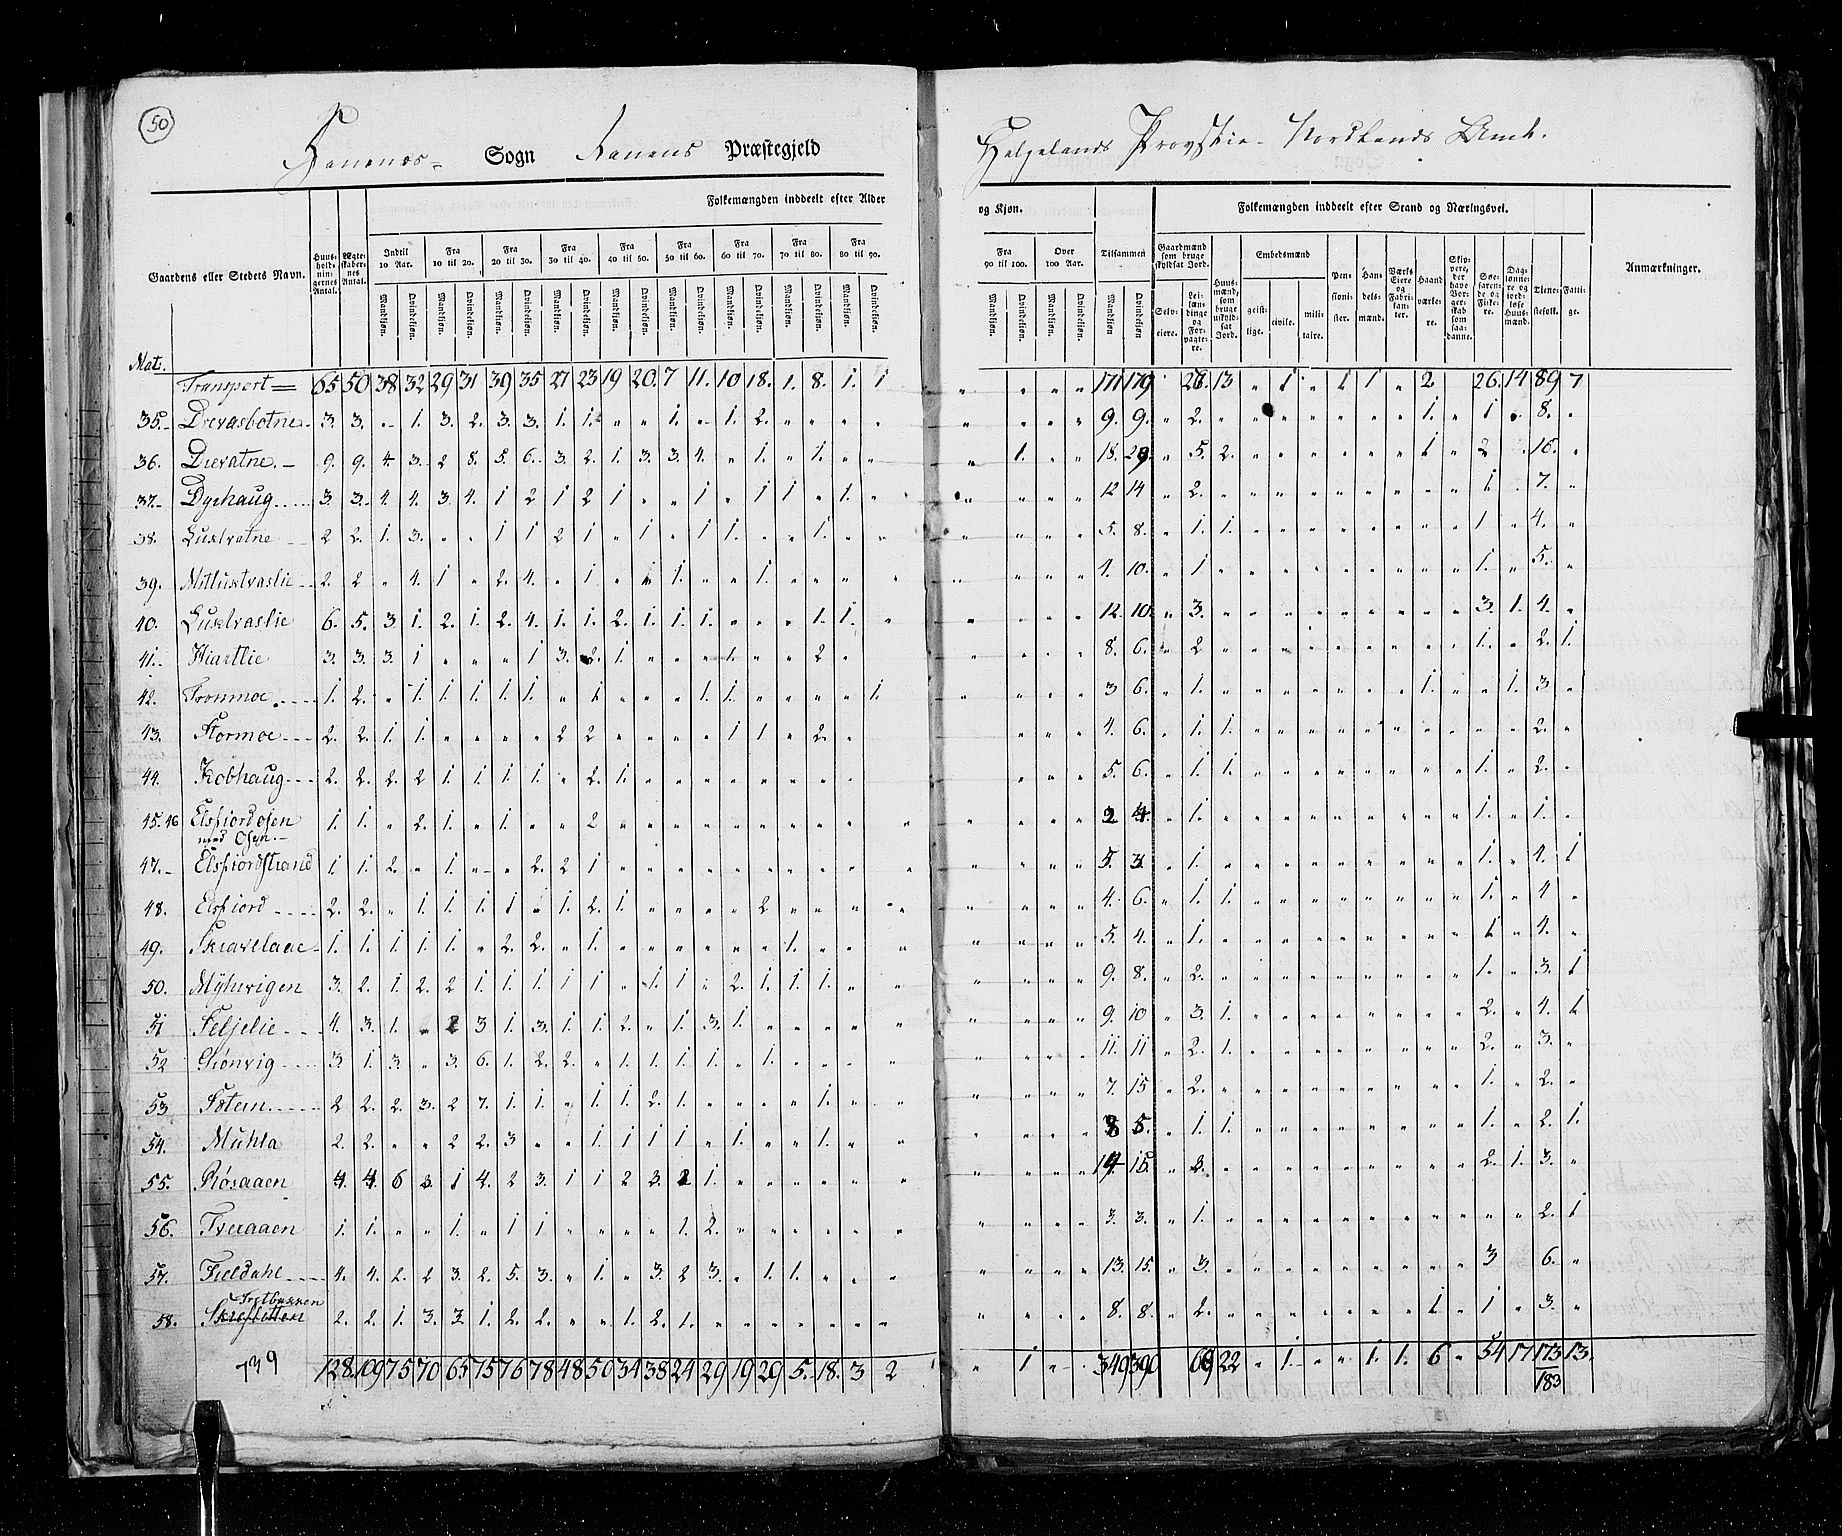 50
Sogn Ranens Præstegjeld
Helgelands Provstie Nordlands Amt.
Folkemængden inddeelt efter Alder
og Kjøn.
Folkemængden inddeelt efter Stand og Næringsvei.
Gaardens eller Stedets Navn.
Huus-holdnin-gernes Antal.
Ægte-skaber-nes Antal.
Indtil 10 Aar.
Fra 10 til 20.
Fra 20 til 30.
Fra 30 til 40.
Fra 40 til 50.
Fra 50 til 60.
Fra 60 til 70.
Fra 70 til 80.
Fra 80 til 90.
Fra 90 til 100.
Over 100 Aar.
Tilsammen
Mandkjøn. Qvindekjøn.
Gaardmænd som bruge skyldsat Jord.
Selv-eiere.
Lei-lændinge og For-pagte-re.
Huus-mænd, som bruge uskyld-sat Jord.
Embedsmænd
geist-lige. civile. mili-taire.
Pen-sionister.
Han-dels-mænd.
Værks Eiere og Fabri-kanter.
Haand-værke-re.
Skip-pere, der have Bor-ger-skab som saa-danne.
Søe-farende og Fiske-re.
Dag-lønne-re og jord-løse Huus-mænd.
Tjene-stefolk.
Fatti-ge.
Anmærkninger.
Mat:
Transport 65 50 38 32 29 31 39 35 27 23 19 20 7 11 10 18 1 8 1 1 171 179 13 1 1 1 2 26 14 89 7
35. Drevasbotne 3. 3. 1. 3. 2. 3. 3. 1. 1. 1. 1. 2. 9. 9. 2. 1. 1. 8.
36. Drevatne. 9. 9. 4. 3. 2 8. 5. 6. 3. 2. 1. 3. 3. 4. 1. 1. 1. 18. 5. 2. 1 2 16.
37. Dyehaug 3. 3. 4. 4. 3. 4. 1 2 1 2 1 1 1 1 1. 12 14 2. 1. 7.
38. Lustvatne 2 2. 1. 3. 1 1 2 1 1 1 1. 1. 5. 8. 1. 1. 1 4.
39. 2. 2 4. 1 2. 4. 1. 1. 1. 4. 10. 1 1. 5.
40. Lustvaslie 6. 5. 3. 1. 2. 1. 2. 4. 1. 1. 2. 1. 1. 1. 1. 1. 12. 10. 3. 3. 1. 4.
41. Hiartlie 3. 3. 3. 1 1 3. 2. 1. 1. 2. 8. 6. 2 1. 2. 1.
42. Tronmoe 1. 2. 1. 1. 1. 1. 1. 1. 1. 1. 1. 3 6. 1. 1. 1. 3
43. Stormoe 2. 2. 1. 1. 2 2 1 1 2. 4. 6. 1. 1. 1. 2.
44. Kobhaug 2. 2. 2. 2 1. 1. 1. 1. 2. 1. 5. 6. 1. 1 1. 2.
45. 46 Elsfiordosen
med Osen.
1. 1. 2. 1. 1. 2 2 4. 1. 1. 1.
47. Elsfiordstrand 1. 1. 2. 1. 2. 2 1 5. 3. 1. 1. 4. 1
48. Elsfiord 2. 2. 1. 1. 1. 1. 1. 2. 1. 2 4. 6. 1. 1. 1. 4
49. 1. 1. 1. 1. 1. 2. 2. 1. 1. 5. 4. 1. 1. 4.
50. 3. 2. 1. 2. 2 1. 1. 1. 1. 1 1. 1. 2. 1. 1. 1. 9. 8. 2. 1. 3. 1
51 4. 3. 1. 3 1. 3. 1. 1. 2. 1. 3. 1. 9. 10 3. 1. 2. 4. 1
52 Grønvig 3. 1 3. 3. 6. 1. 2. 2. 1. 1. 1. 1. 1. 11. 11 2. 1. 2. 3.
53 2 2. 2. 3. 2 7. 1. 1. 1. 1. 2. 1. 1. 7. 15 2. 1. 2.
54. Muhla 2. 2. 2 2. 3 1. 1. 1. 1. 1. 1. 8 5. 1. 1. 1. 2. 1.
55. Røsaaen 4. 4. 6 3. 1 4. 2 3. 1 1 2 3. 2 1. 2. 1. 3.
56. Tveraaen 1. 1. 1. 1 1 1. 2. 3. 3. 1. 2. 1
57. Fieldahl 4. 4. 2. 2 3. 2. 5. 3. 1. 3. 2 3. 1. 1. 13. 15. 3. 3 6.
58. 2. 2. 1. 3. 3 1. 2. 2. 1. 2. 1. 8. 8. 2. 1 1 3.
739 128. 109 75 70 65 75 76 78 48 50 34 38 24 29 19 29 5. 18. 3 2 1 349 390 22 1. 1. 1. 6 54 17 173 13.
183